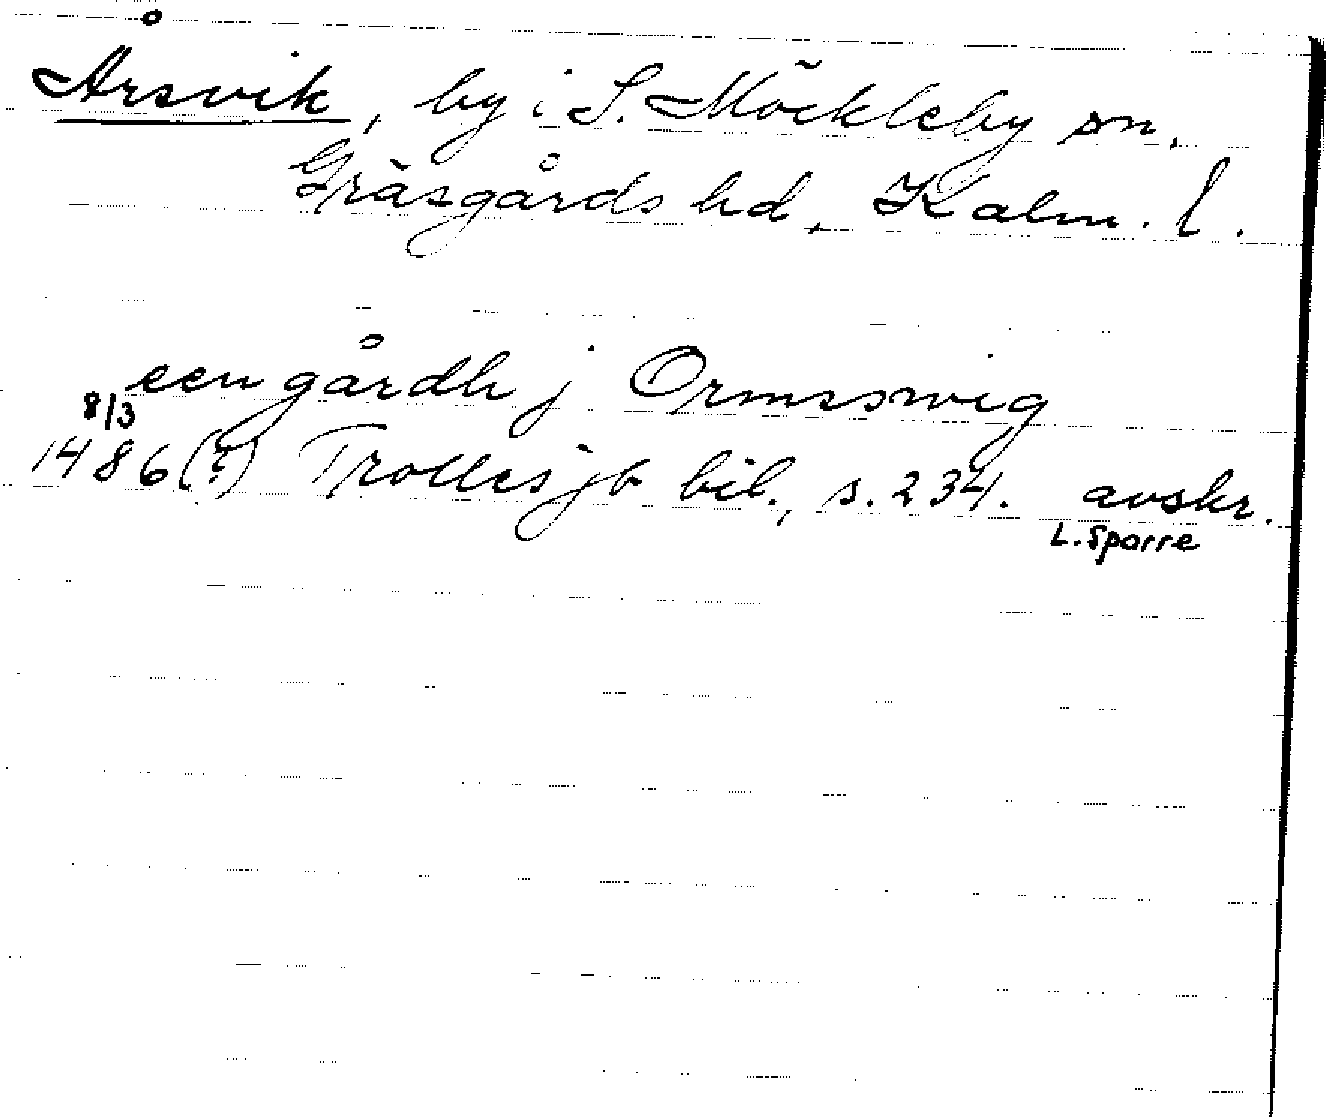 Årsvik, by i S. Möckleby sn.
Gräsgårds hd, Kalm. l.
een gårdh j Ormsswig
8/3
1486(?) Trolles jb bil., s. 234. avskr.
L. Sparre